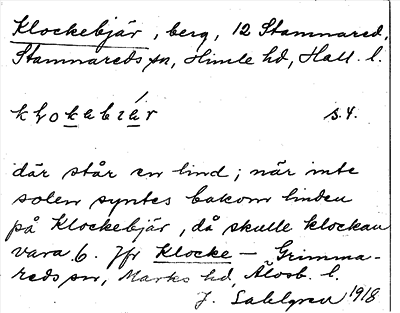 Klockebjär, berg, 12 Stamnared,
Stamnareds sn, Himle hd, Hall. l.
s.4.
där står en lind; när inte
solen syntes bakom linden
på Klockebjär, då skulle klockan
vara 6. Jfr Klocke – Grimma-
reds sn, Marks hd, Älvsb. l.
J. Sahlgren 1918